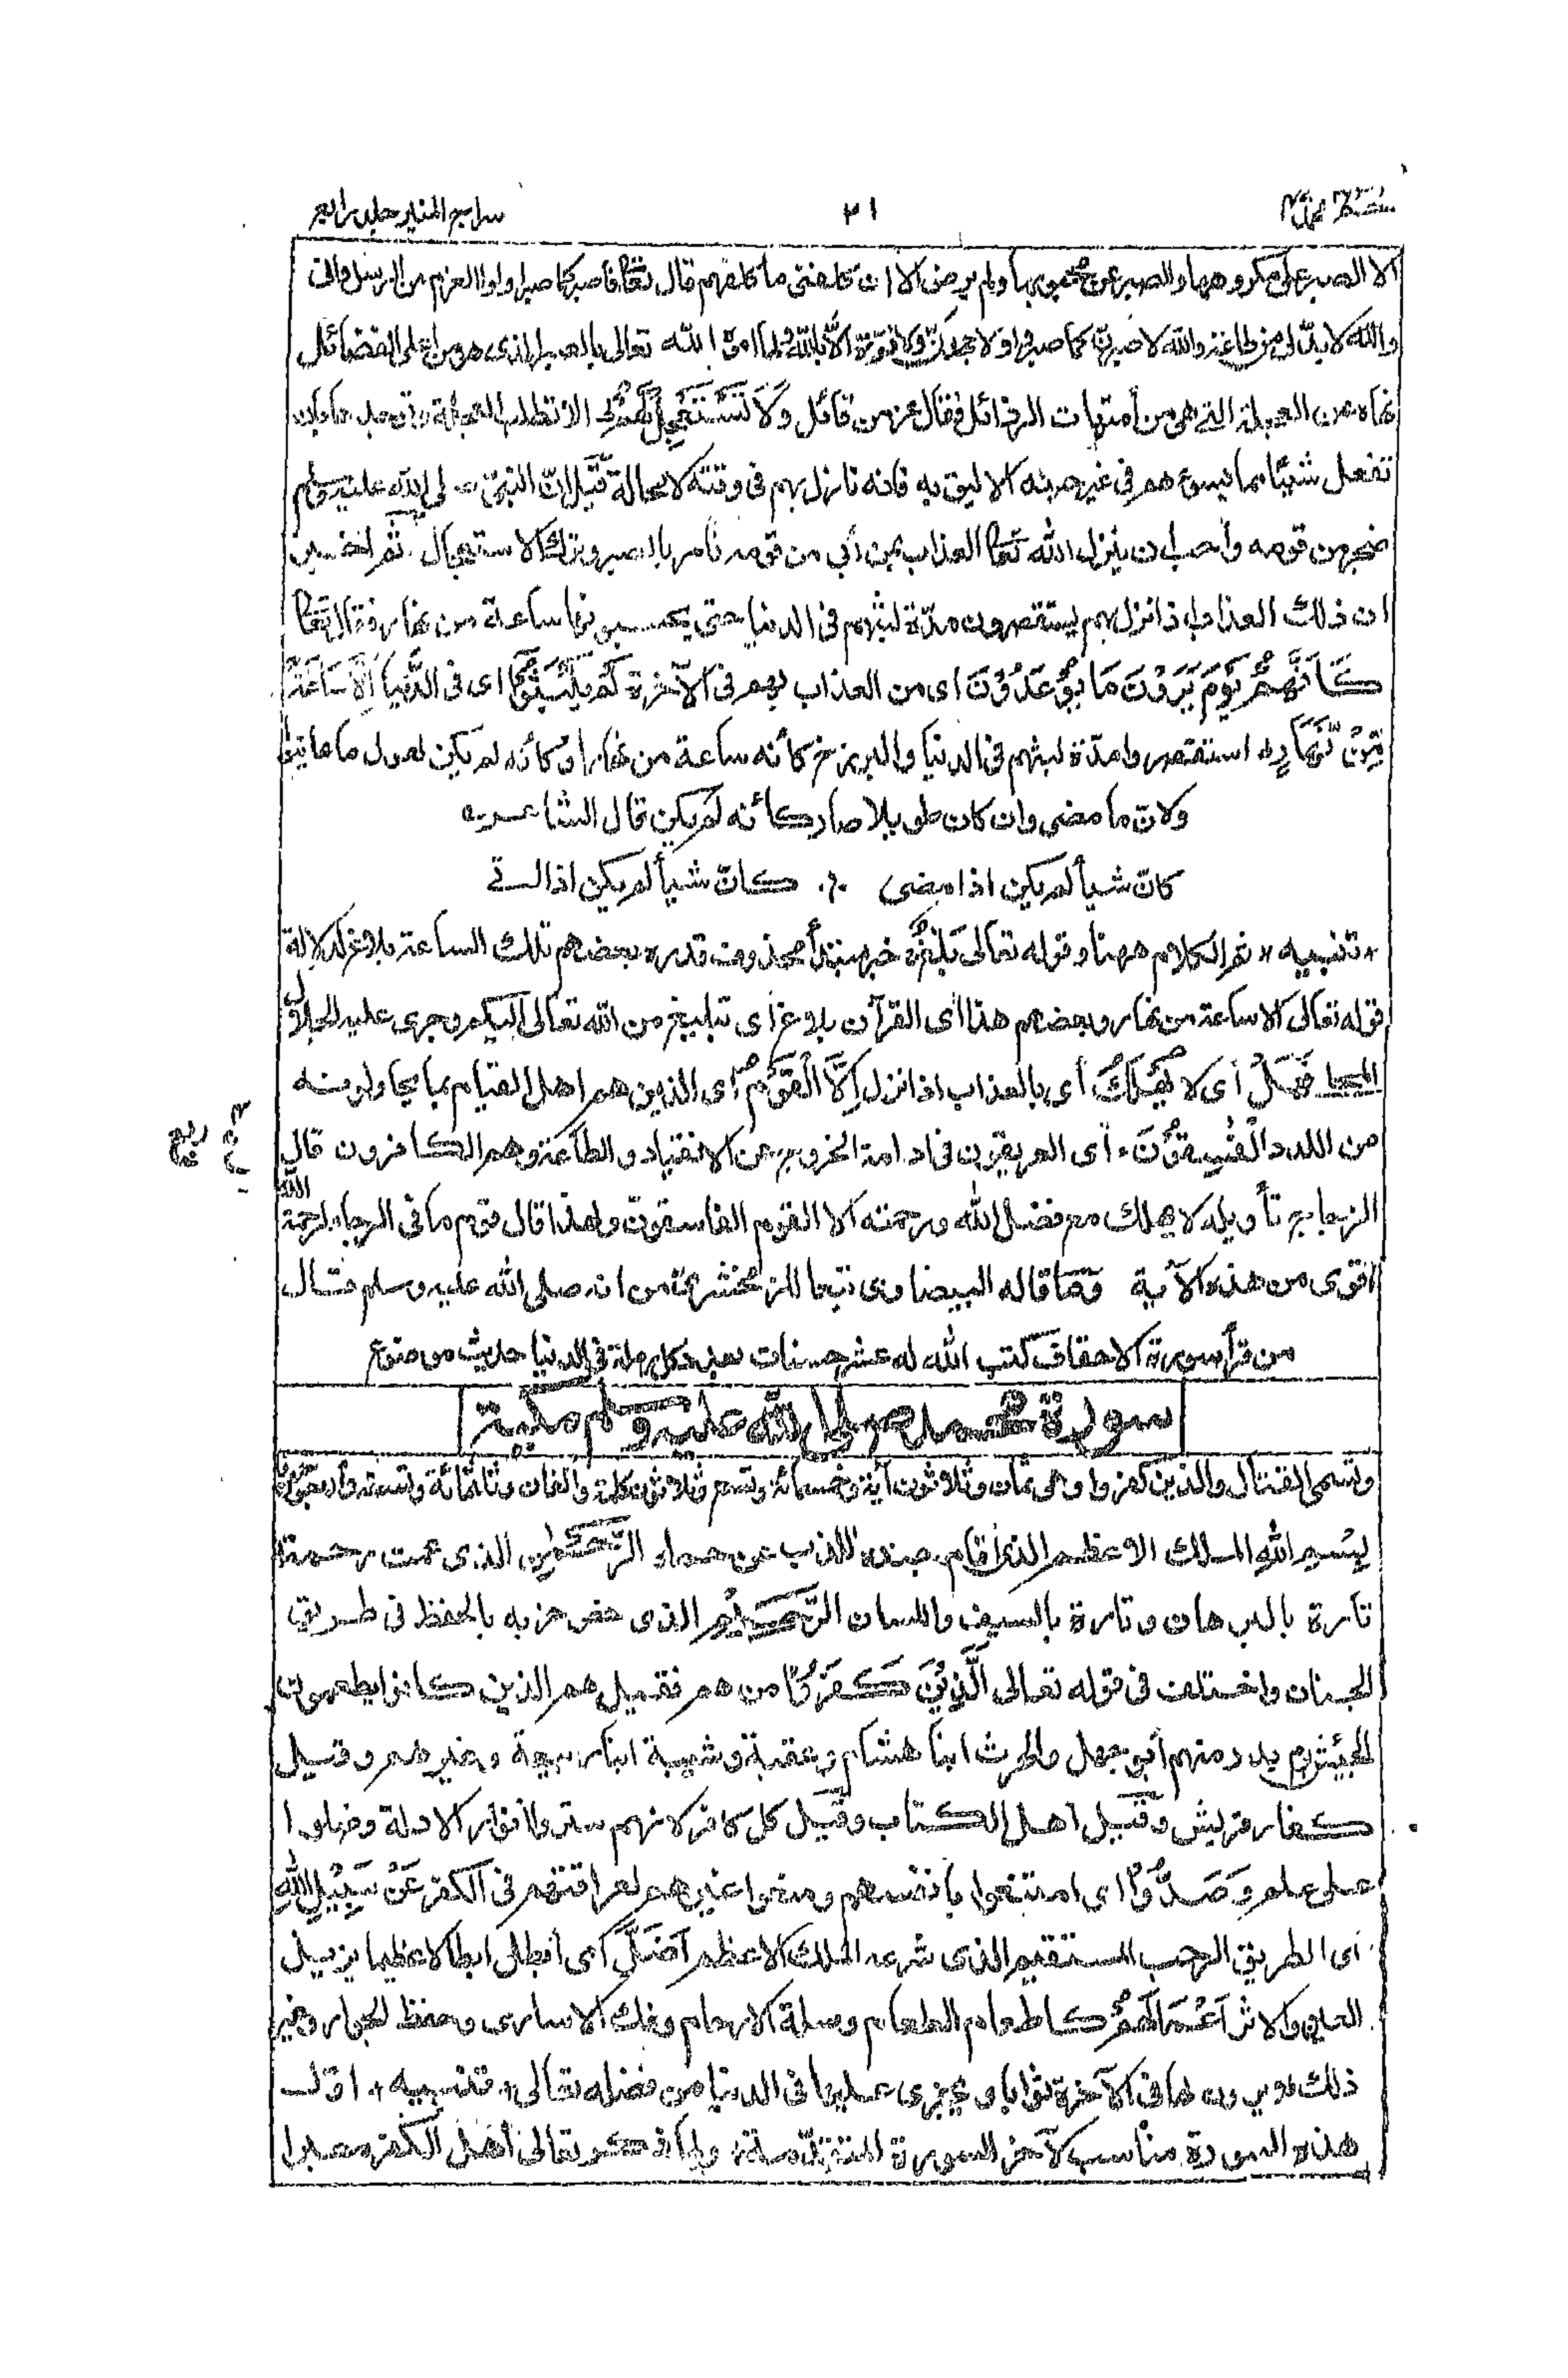 سورة محمد ٣١ سراج المنير جلد رابع
الا الصبر على مكروهها والصبر عن محبوبها ولم يرض الا ان كلفنى ما كلفهم قال تعالى فاصبر كما صبر اولوا العزم من الرسل وانى
والله لا بد لى من طاعته والله لاصبرن كما صبروا ولاجهدن ولا قوة الا بالله ولما امره الله تعالى بالصبر الذى هو من اعلى الفضائل
نهاه عن العجلة التى هى من أمهات الرذائل فقال عز من قائل وَلَا تَسْتَعْجِل لَّهُمْ اى لا تطلب العجلة
تفعل شيئا مما يسوءهم فى غير حينه الا ليق به فانه نازل بهم فى وقته لا محالة قيل ان النبى صلى الله عليه وسلم
ضجر من قومه وأحب ان ينزل الله تعالى العذاب بمن أبى من قومه فأمر بالصبر وترك الاستعجال ثم اخبر
ان ذلك العذاب اذا نزل بهم يستقصرون مدة لبثهم فى الدنيا حتى يحسبونها ساعة من نهار فقال تعالى
كَأَنَّهُمْ يَوْمَ يَرَوْنَ مَا يُوعَدُوْنَ اى من العذاب بهم فى الآخرة لَمْ يَلْبَثُوْا اى فى الدُّنيا اِلَّا سَاعَةً
مِّنْ نَّهَارٍ استقصروا مدة لبثهم فى الدنيا والبرزخ كأنه ساعة من نهار او كأنه لم يكن لهول ما عاينوا
ولان ما مضى وان كان طويلا صار كأنه لم يكن قال الشاعر
كان شيأ لم يكن اذا مضى ٪ كان شيأ لم يكن اذا اتى
* تنبيه * تم الكلام ههنا وقوله تعالى بَلٰغٌ خبر مبتدأ محذوف قدره بعضهم تلك الساعة بلاغ لدلالة
قوله تعالى الا ساعة من نهار وبعضهم هذا اى القرآن بلاغ اى تبليغ من الله تعالى اليكم وجرى عليه الجلال
المحلى فَهَلْ أى لا يُهْلَكُ أى بالعذاب اذا نزل اِلَّا الْقَوْمُ أى الذين هم اهل القيام بما يحاولونه
من اللدد الْفٰسِقُوْنَ أى العريقون فى ادامة الخروج عن الانقياد والطاعة وهم الكافرون قال
الزجاج تأويله لا يهلك مع فضل الله ورحمته الا القوم الفاسقون ولهذا قال قوم ما فى الرجاء لرحمة الله
اقوى من هذه الآية وما قاله البيضاوى تبعا للزمخشرى من انه صلى الله عليه وسلم قال
من قرأ سورة الاحقاف كتب الله له عشر حسنات بعدد كل رملة فى الدنيا حديث موضوع
ربع
سورة محمد صلى الله عليه وسلم مدنية
وتسمى القتال والذين كفروا وهى ثمان وثلاثون آية وخمسمائة وتسع وثلاثون كلمة والفان وثلثمائة وتسعة وأربعون
بِسْمِ اللهِ الملك الاعظم الذى اقام جنده للذب عن حماه الرَّحْمٰنِ الذى عمت رحمته
تارة بالبرهان وتارة بالسيف واللسان الرَّحِيْمِ الذى خص حزبه بالحفظ فى طريق
الجنان واختلف فى قوله تعالى اَلَّذِيْنَ كَفَرُوْا من هم فقيل هم الذين كانوا يطعمون
الجيش يوم بدر منهم أبو جهل والحرث ابنا هشام وعتبة وشيبة ابنا ربيعة وغيرهم وقيل
كفار قريش وقيل اهل الكتاب وقيل كل كافر لانهم ستروا انوار الادلة وضلوا
على علم وَصَدُّوْا اى امتنعوا بانفسهم ومنعوا غيرهم لعراقتهم فى الكفر عَنْ سَبِيْلِ اللهِ
اى الطريق الرحب المستقيم الذى شرعه الملك الاعظم اَضَلَّ اى ابطل ابطالا عظيما يزيل
العين والاثر اَعْمَالَهُمْ كاطعام الطعام وصلة الارحام وفك الاسارى وحفظ الجوار وغير
ذلك فلا يرون لها فى الآخرة ثوابا ويجزى عليها فى الدنيا من فضله تعالى * تنبيه * اول
هذه السورة مناسب لآخر السورة المتقدمة ولما ذكر تعالى أهل الكفر معبرا